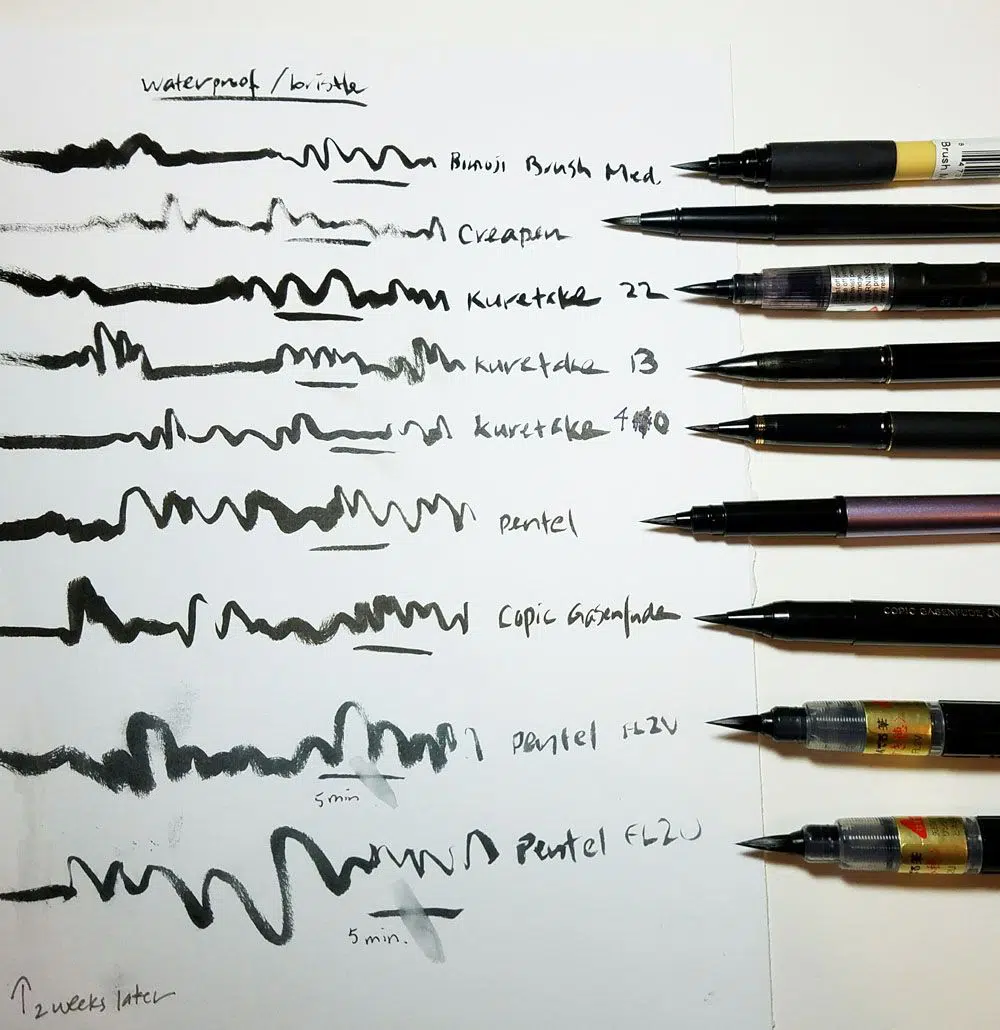 waterproof / bristle
Bimoji Brush Med.
Brush
Creapen
Kuretake 22
WARNING
Kuretake 13
Kuretake 40
Pentel
Copic Gasenfude
COPIC GASENFUDE
Pentel FL2V
5 min
Pentel FL2U
5 min.
↑ 2 weeks later